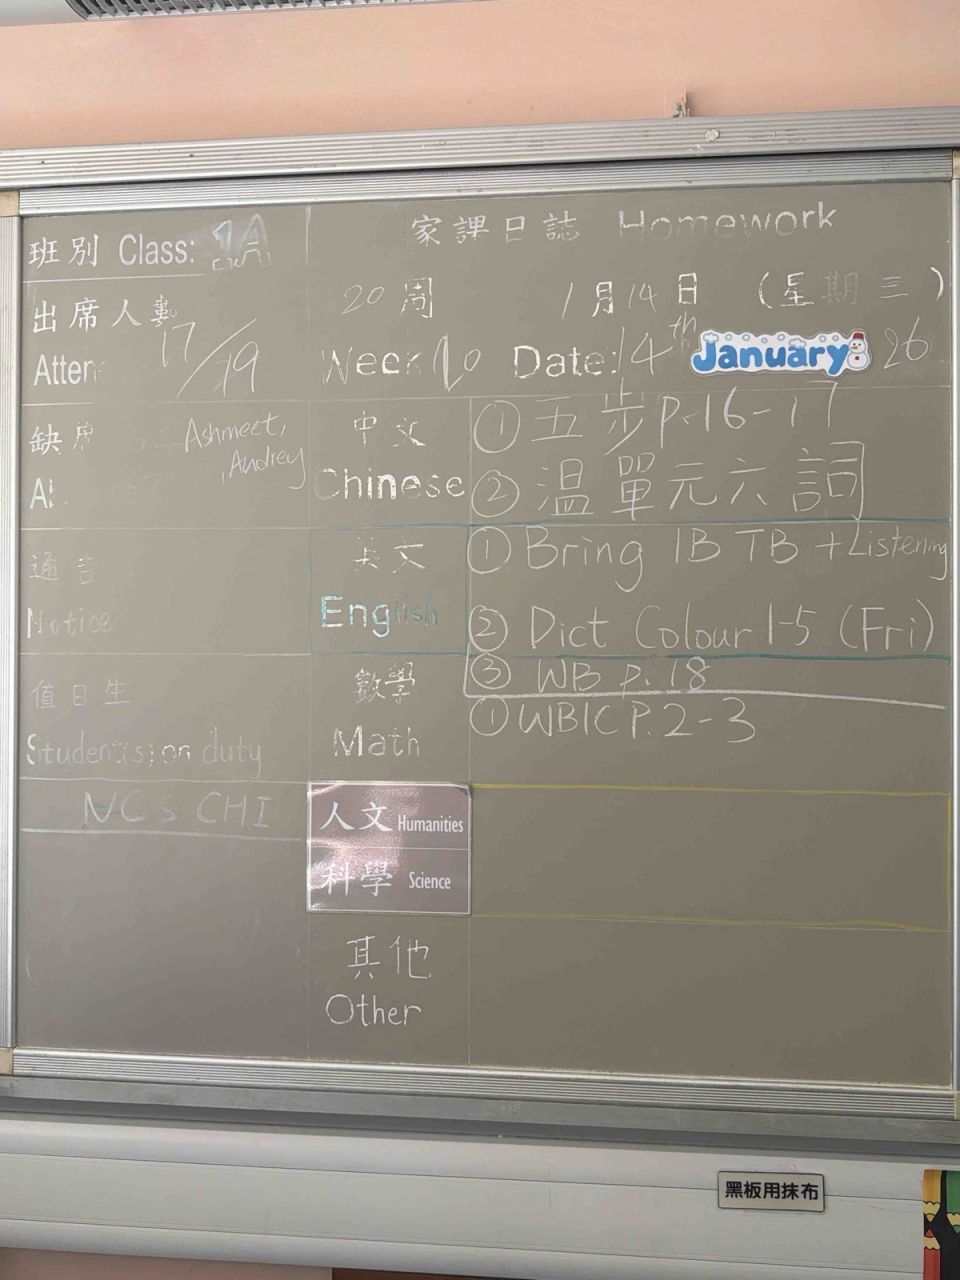 班別 Class: 1A
家課日誌 Homework
出席人數
Atten
17/19
20周 1月14日 (星期三)
Week 20 Date: 14th January 26
缺席 Ashmeet,
,Audrey
中文
Chinese
① 五步 p.16-17
② 温單元六詞
通告
Notice
英文
English
① Bring 1B TB + Listening
② Dict Colour 1-5 (Fri)
③ WB p.18
值日生
Student(s) on duty
數學
Math
① WB1C P.2-3
NCS CHI
人文 Humanities
科學 Science
其他
Other
黑板用抹布